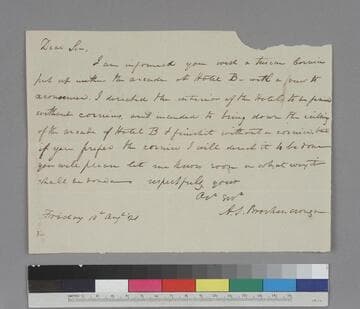 Dear Sir,
I am informed you wish a tuscan cornice
put up within the arcade of Hotel B- with a view to
I directed the interior of the Hotels to be finished
without cornices, and intended to bring down the ceiling
of the arcade of Hotel B & finish it without a cornice but
if you prefer the cornice I will direct it to be done
you will please let me know soon in what way it
shall be done respectfully your
Obt Sert
A. S. Brockenbrough
Friday 10th Augt 21